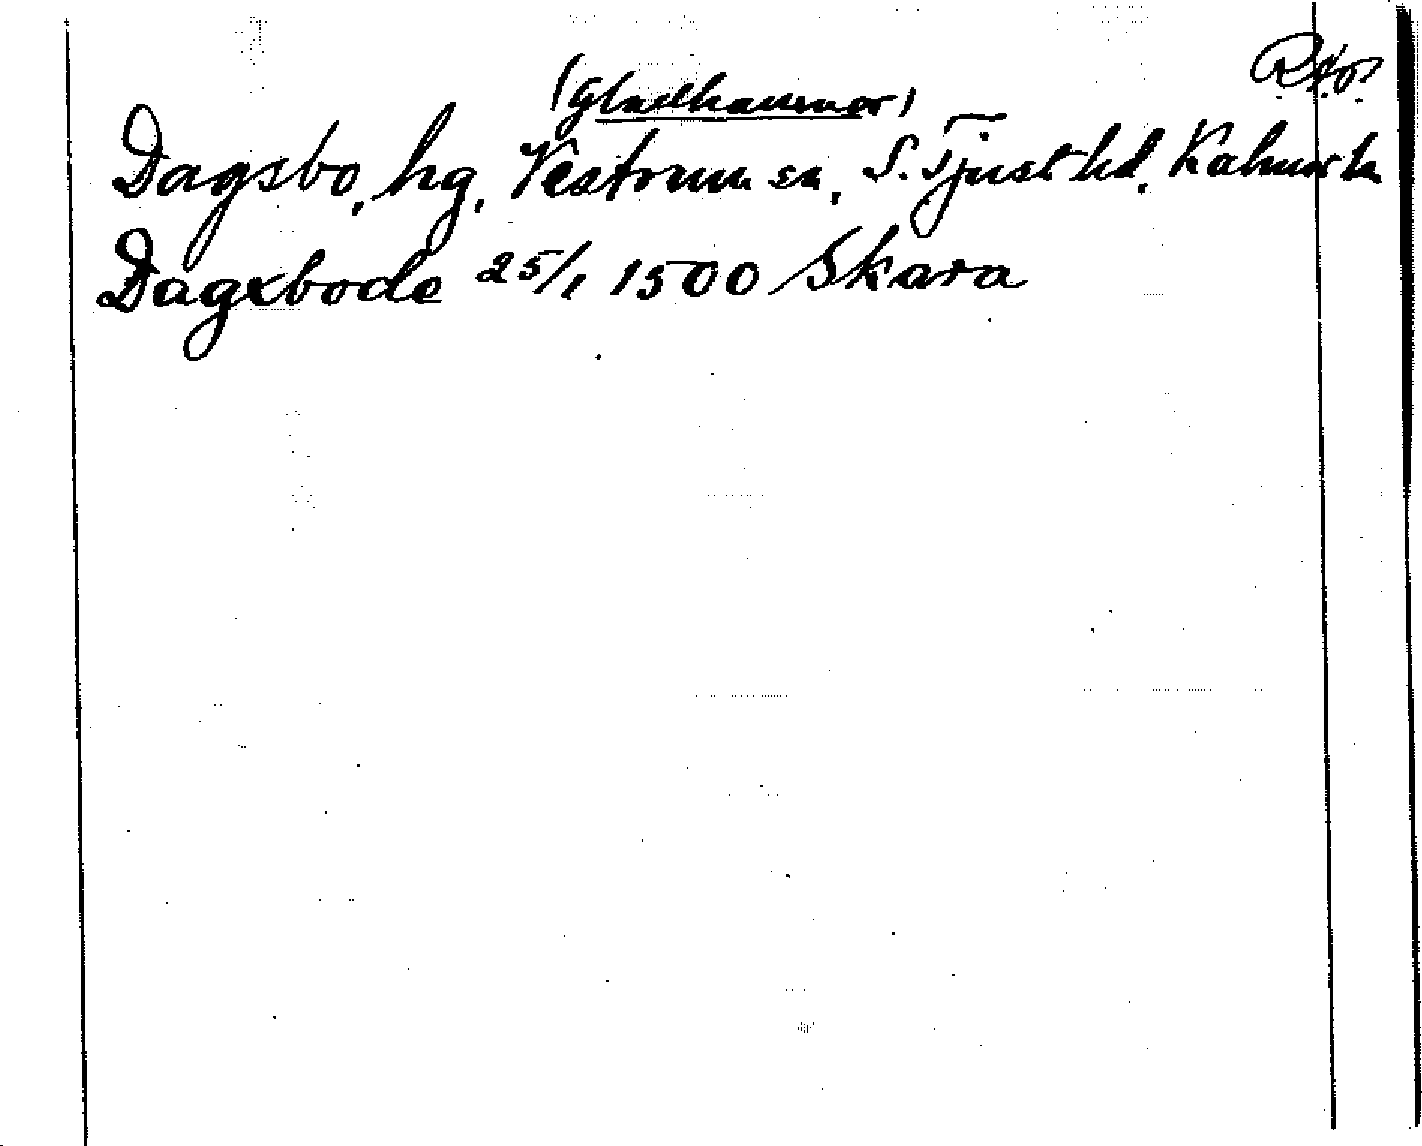 (Gladhammar)
Dagsbo, hg, Vestrum sn, S. Tjust hd, Kalmar ln
Dagxbode 25/1 1500 Skara